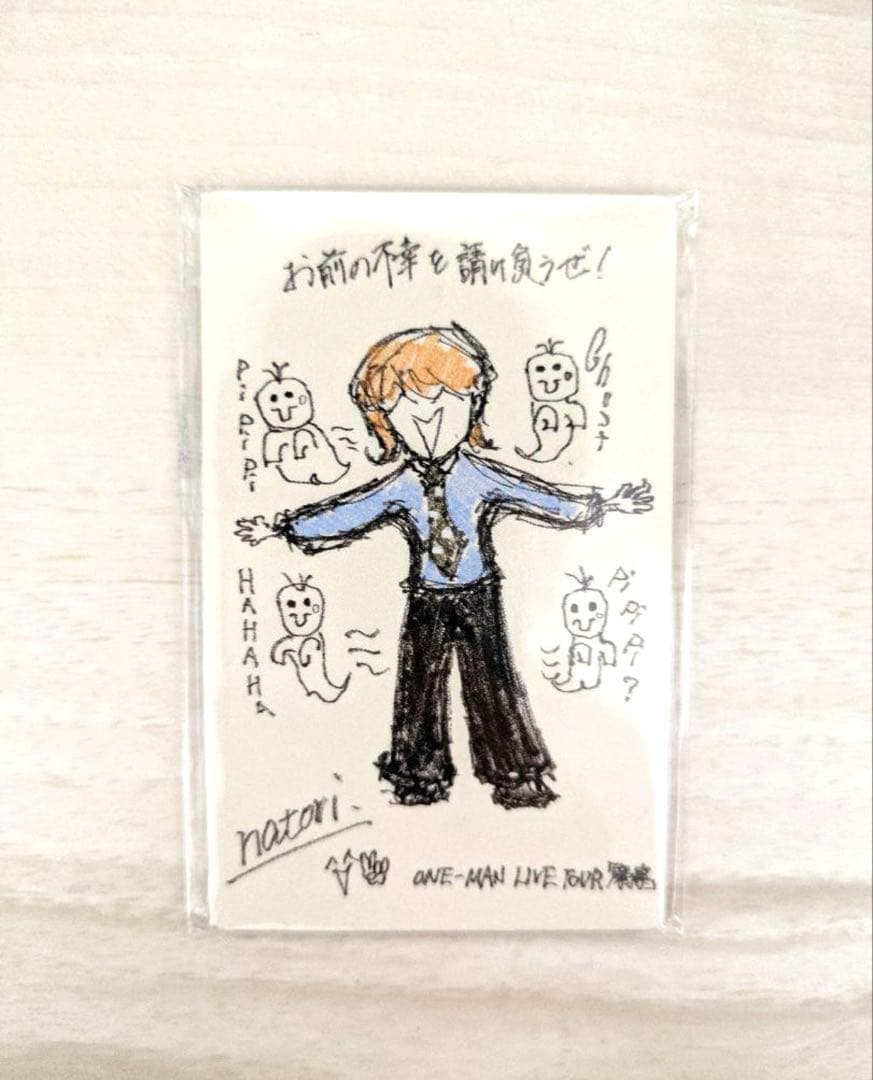 お前の不幸を請け負うぜ!
Pii Pii Pii
Ghost
HAHAHAHA
Pi Pi Pi?
natori.
ONE-MAN LIVE TOUR